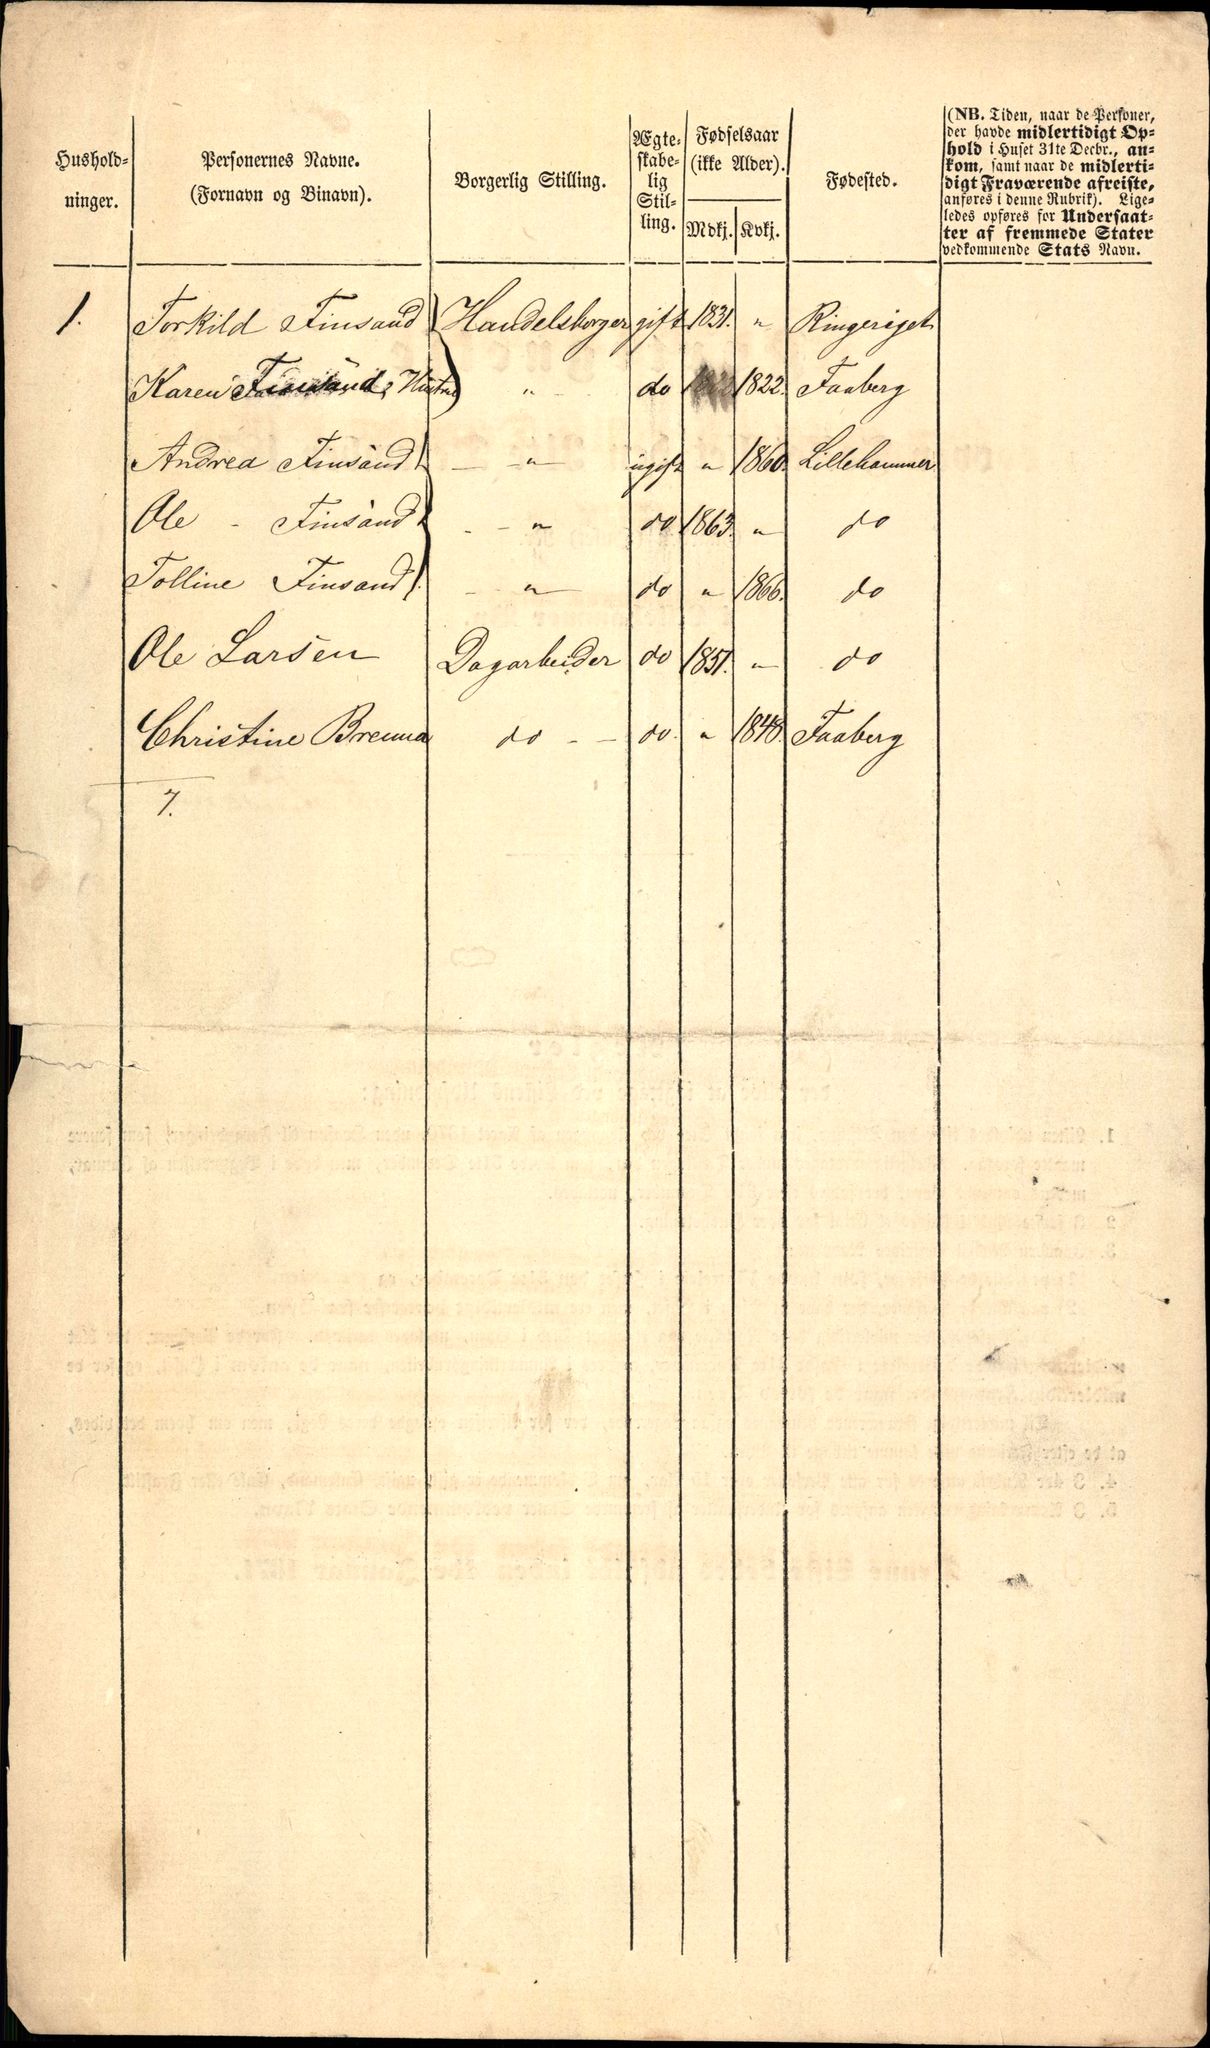 Hushold-
ninger.
Personernes Navne.
(Fornavn og Binavn).
Borgerlig Stilling.
Ægte-
skabe-
lig
Stil-
ling.
Fødselsaar
(ikke Alder).
Mdkj. Kvkj.
Fødested.
(NB. Tiden, naar de Personer,
der havde midlertidigt Op-
hold i Huset 31te Decbr., an-
kom, samt naar de midlerti-
digt Fraværende afreiste,
anføres i denne Rubrik). Lige-
ledes opføres for Undersaat-
ter af fremmede Stater
vedkommende Stats Navn.
1. Torkild Finsand Handelsborger gift 1831. " Ringeriget
Karen Finsand, Hustru " do 1822. Faaberg
Andrea Finsand " ugift " 1860. Lillehammer
Ole - Finsand " do 1863. " do
Tolline Finsand " do " 1866. do
Ole Larsen Dagarbeider do 1851. " do
Christine Brenna do do. " 1848. Faaberg
7.